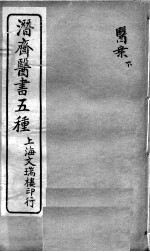 醫案下
潛齋醫書五種
上海文瑞樓印行